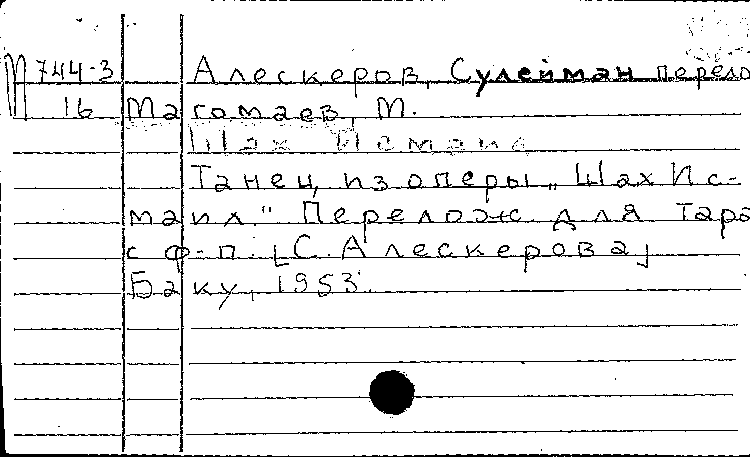 М 744-3 Алескеров, Сулейман перело
16 Магомаев, М.
Шах Исмаил
Танец из оперы „Шах Ис-
маил." Перелож. для тара
с ф-п. [С. Алескерова]
Баку, 1953.